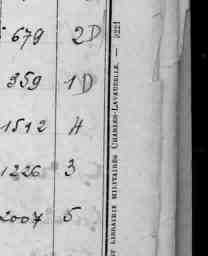 679 2D
359 1D
1512 4
1226 3
2007 5
ET LIBRAIRIE MILITAIRES CHARLES-LAVAUZELLE. —